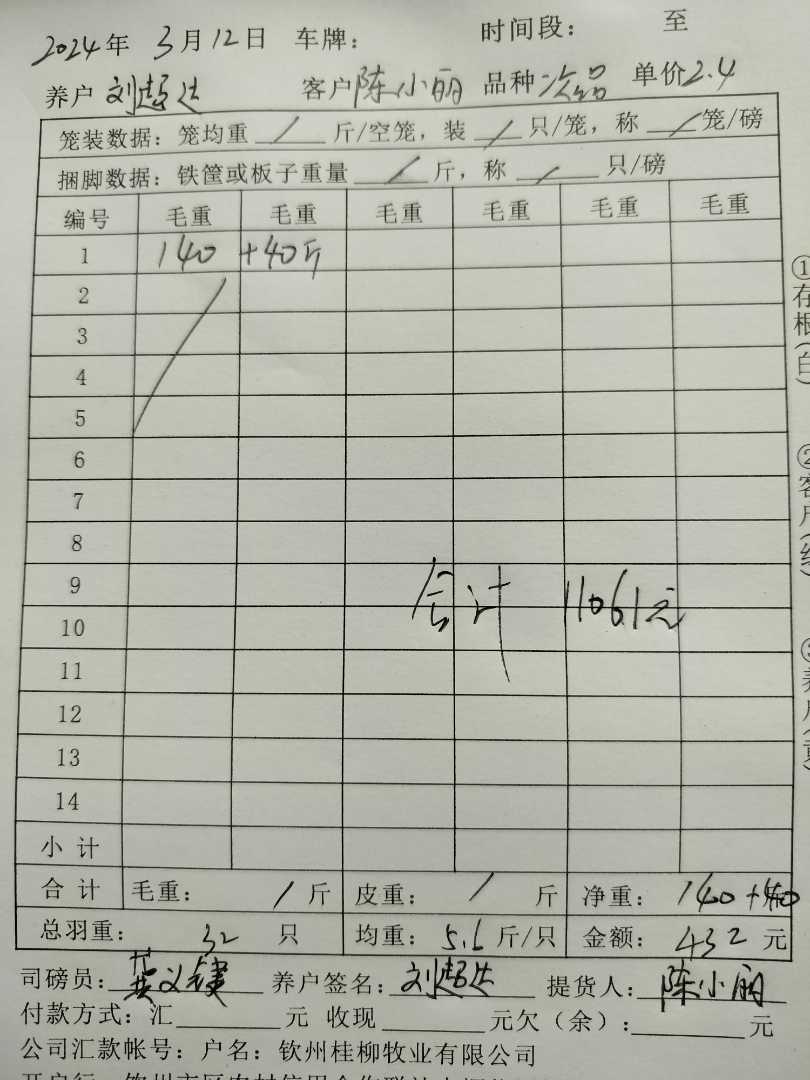 2024年 3月12日 车牌： 时间段： 至
养户 刘超达 客户 陈小丽 品种 次品 单价 2.4
笼装数据：笼均重 / 斤/空笼，装 / 只/笼，称 / 笼/磅
捆脚数据：铁筐或板子重量 / 斤，称 / 只/磅
编号 毛重 毛重 毛重 毛重 毛重 毛重
1 140 +40斤
2
3
4
5
6
7
8
9 合计 11061元
10
11
12
13
14
小计
合计 毛重： / 斤 皮重： / 斤 净重： 140+40
总羽重： 32 只 均重： 5.6 斤/只 金额： 432 元
司磅员： 养户签名： 刘超达 提货人： 陈小丽
付款方式：汇 元 收现 元欠（余）： 元
公司汇款帐号：户名：钦州桂柳牧业有限公司
①存根（白
②客户（红）